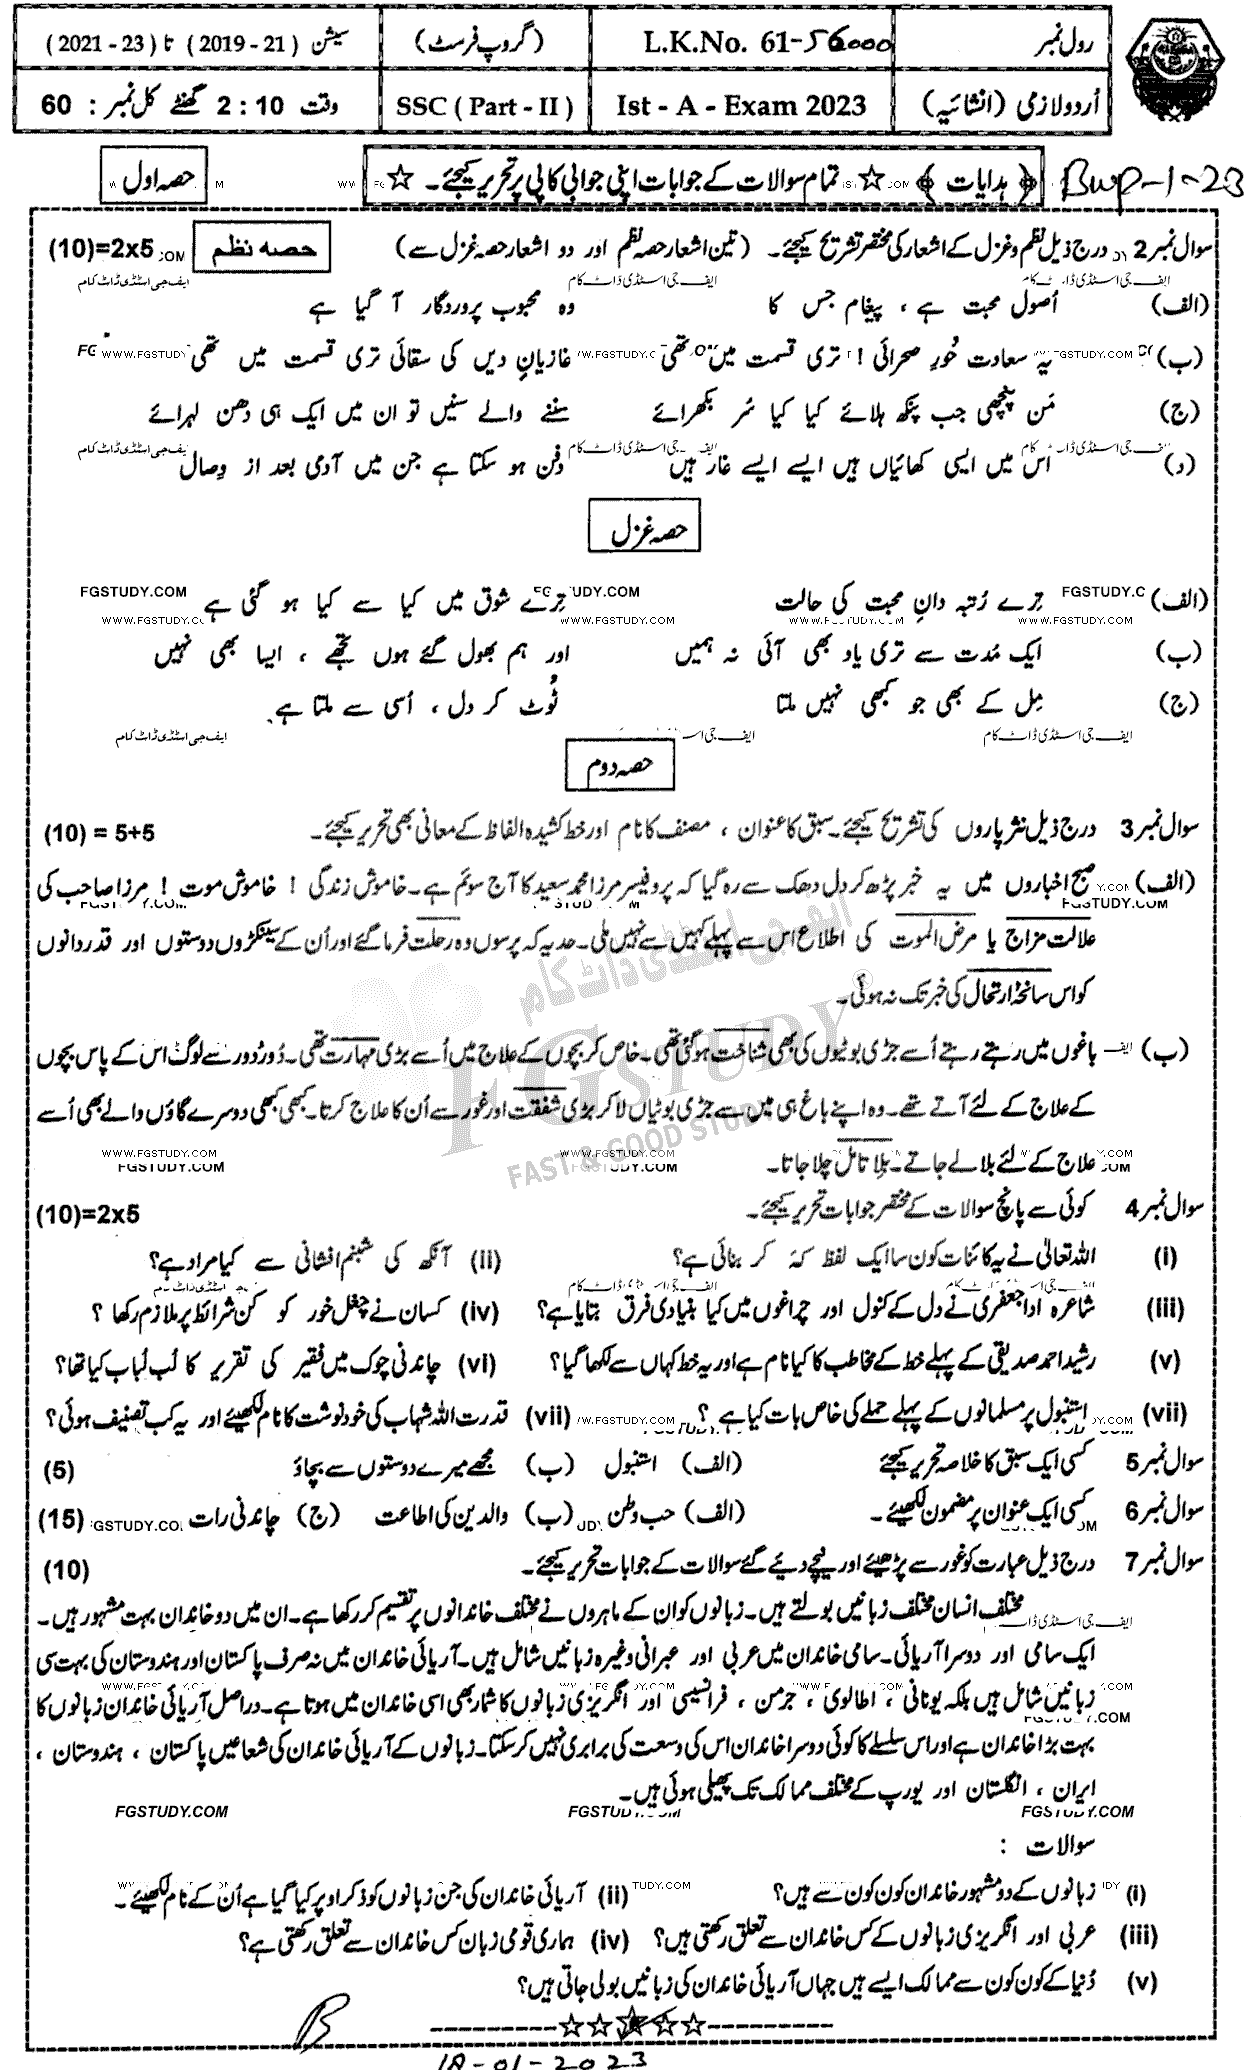 رول نمبر L.K.No. 61-56000 (گروپ فرسٹ) سیشن (2019 - 21) تا (2021 - 23)
اُردو لازمی (انشائیہ) Ist - A - Exam 2023 SSC ( Part - II ) وقت 2 : 10 گھنٹے کل نمبر : 60
Bwp-1-23 ﴿ ہدایات ﴾ ☆ تمام سوالات کے جوابات اپنی جوابی کاپی پر تحریر کیجئے۔ ☆ حصہ اول
سوال نمبر 2 درج ذیل نظم و غزل کے اشعار کی مختصر تشریح کیجئے۔ (تین اشعار حصہ نظم اور دو اشعار حصہ غزل سے) حصہ نظم (10)=2x5
(الف) اُصول محبت ہے ، پیغام جس کا وہ محبوب پروردگار آ گیا ہے
(ب) یہ سعادت حُورِ صحرائی ! تری قسمت میں تھی غازیانِ دیں کی سقائی تری قسمت میں تھی
(ج) مَن پنچھی جب پنکھ ہلائے کیا کیا سُر بکھرائے سننے والے سنیں تو ان میں ایک ہی دھن لہرائے
(د) اس میں ایسی کھائیاں ہیں ایسے ایسے غار ہیں دفن ہو سکتا ہے جن میں آدمی بعد از وِصال
حصہ غزل
(الف) ترے رُتبہ دانِ محبت کی حالت تِرے شوق میں کیا سے کیا ہو گئی ہے
(ب) ایک مُدت سے تری یاد بھی آئی نہ ہمیں اور ہم بھول گئے ہوں تجھے ، ایسا بھی نہیں
(ج) مِل کے بھی جو کبھی نہیں ملتا ٹُوٹ کر دل ، اُسی سے ملتا ہے
حصہ دوم
سوال نمبر 3 درج ذیل نثر پاروں کی تشریح کیجئے۔ سبق کا عنوان ، مصنف کا نام اور خط کشیدہ الفاظ کے معانی بھی تحریر کیجئے۔ (10) = 5+5
(الف) صبح اخباروں میں یہ خبر پڑھ کر دل دھک سے رہ گیا کہ پروفیسر مرزا محمد سعید کا آج سوئم ہے۔ خاموش زندگی ! خاموش موت ! مرزا صاحب کی
علالت مزاج یا مرض الموت کی اطلاع اس سے پہلے کہیں سے نہیں ملی۔ حد یہ کہ پرسوں وہ رحلت فرما گئے اور اُن کے سینکڑوں دوستوں اور قدردانوں
کو اس سانحۂ ارتحال کی خبر تک نہ ہوئی۔
(ب) باغوں میں رہتے رہتے اُسے جڑی بوٹیوں کی بھی شناخت ہو گئی تھی۔ خاص کر بچوں کے علاج میں اُسے بڑی مہارت تھی۔ دُور دُور سے لوگ اس کے پاس بچوں
کے علاج کے لئے آتے تھے۔ وہ اپنے باغ ہی میں سے جڑی بوٹیاں لا کر بڑی شفقت اور غور سے اُن کا علاج کرتا۔ کبھی کبھی دوسرے گاؤں والے بھی اُسے
علاج کے لئے بلا لے جاتے۔ بلا تامل چلا جاتا۔
سوال نمبر 4 کوئی سے پانچ سوالات کے مختصر جوابات تحریر کیجئے۔ (10)=2x5
(i) اللہ تعالیٰ نے یہ کائنات کون سا ایک لفظ کہہ کر بنائی ہے؟ (ii) آنکھ کی شبنم افشانی سے کیا مراد ہے؟
(iii) شاعرہ ادا جعفری نے دل کے کنول اور چراغوں میں کیا بنیادی فرق بتایا ہے؟ (iv) کسان نے چغل خور کو کن شرائط پر ملازم رکھا ؟
(v) رشید احمد صدیقی کے پہلے خط کے مخاطب کا کیا نام ہے اور یہ خط کہاں سے لکھا گیا؟ (vi) چاندنی چوک میں فقیر کی تقریر کا لُب لُباب کیا تھا؟
(vii) استنبول پر مسلمانوں کے پہلے حملے کی خاص بات کیا ہے ؟ (vii) قدرت اللہ شہاب کی خود نوشت کا نام لکھیئے اور یہ کب تصنیف ہوئی؟
سوال نمبر 5 کسی ایک سبق کا خلاصہ تحریر کیجئے (الف) استنبول (ب) مجھے میرے دوستوں سے بچاؤ (5)
سوال نمبر 6 کسی ایک عنوان پر مضمون لکھیئے۔ (الف) حب وطن (ب) والدین کی اطاعت (ج) چاندنی رات (15)
سوال نمبر 7 درج ذیل عبارت کو غور سے پڑھیئے اور نیچے دیئے گئے سوالات کے جوابات تحریر کیجئے۔ (10)
مختلف انسان مختلف زبانیں بولتے ہیں۔ زبانوں کو ان کے ماہروں نے مختلف خاندانوں پر تقسیم کر رکھا ہے۔ ان میں دو خاندان بہت مشہور ہیں۔
ایک سامی اور دوسرا آریائی۔ سامی خاندان میں عربی اور عبرانی وغیرہ زبانیں شامل ہیں۔ آریائی خاندان میں نہ صرف پاکستان اور ہندوستان کی بہت سی
زبانیں شامل ہیں بلکہ یونانی ، اطالوی ، جرمن ، فرانسیسی اور انگریزی زبانوں کا شمار بھی اسی خاندان میں ہوتا ہے۔ دراصل آریائی خاندان زبانوں کا
بہت بڑا خاندان ہے اور اس سلسلے کا کوئی دوسرا خاندان اس کی وسعت کی برابری نہیں کر سکتا۔ زبانوں کے آریائی خاندان کی شعاعیں پاکستان ، ہندوستان ،
ایران ، انگلستان اور یورپ کے مختلف ممالک تک پھیلی ہوئی ہیں۔
FGSTUDY.COM FGSTUDY.COM FGSTUDY.COM
سوالات :
(i) زبانوں کے دو مشہور خاندان کون کون سے ہیں؟ (ii) آریائی خاندان کی جن زبانوں کو ذکر اوپر کیا گیا ہے اُن کے نام لکھیئے۔
(iii) عربی اور انگریزی زبانوں کے کس خاندان سے تعلق رکھتی ہیں؟ (iv) ہماری قومی زبان کس خاندان سے تعلق رکھتی ہے؟
(v) دُنیا کے کون کون سے ممالک ایسے ہیں جہاں آریائی خاندان کی زبانیں بولی جاتی ہیں؟
1A-01-2023